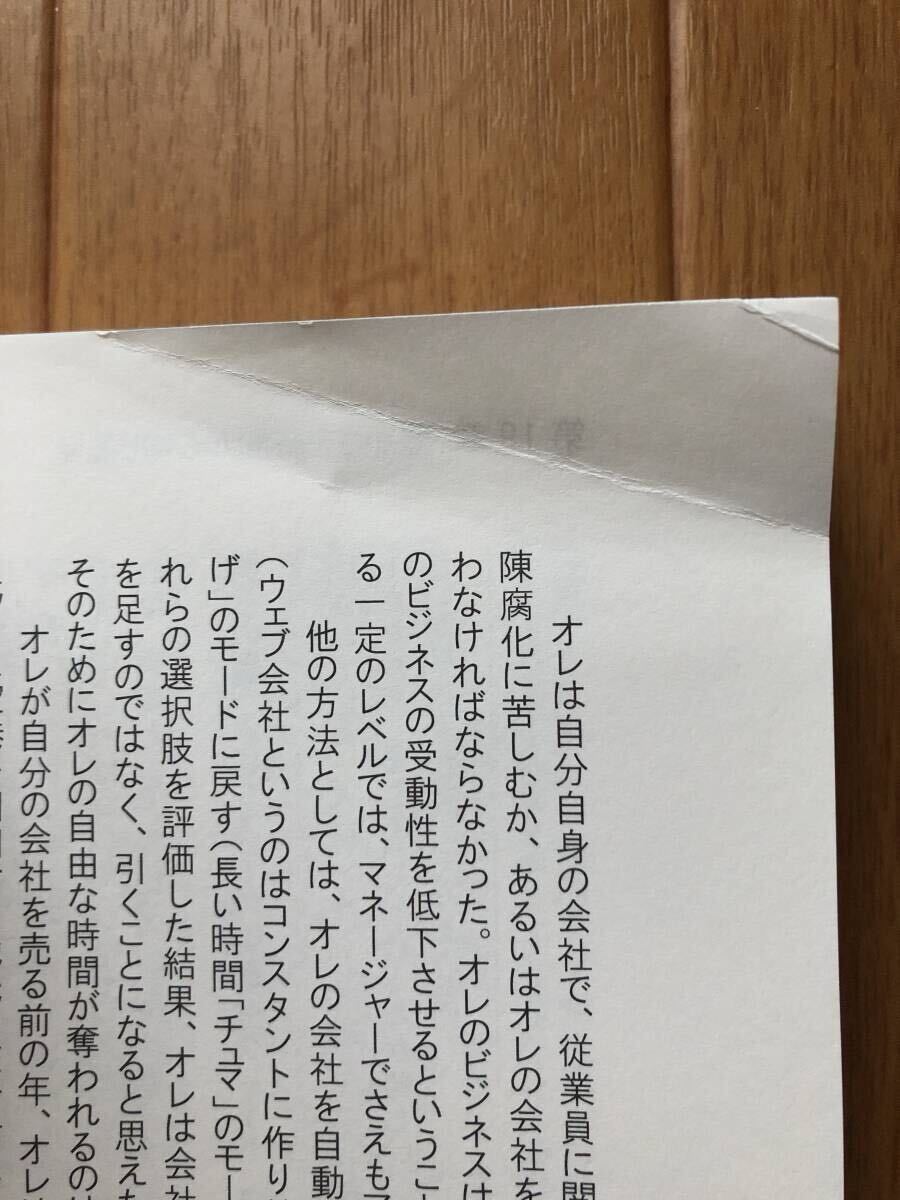 オレは自分自身の会社で、従業員に関
陳腐化に苦しむか、あるいはオレの会社を
わなければならなかった。オレのビジネスは
のビジネスの受動性を低下させるということ
る一定のレベルでは、マネージャーでさえも
他の方法としては、オレの会社を自動
(ウェブ会社というのはコンスタントに作り
げ」のモードに戻す(長い時間「チュマ」のモー
れらの選択肢を評価した結果、オレは会社
を足すのではなく、引くことになると思えた
そのためにオレの自由な時間が奪われるのは
オレが自分の会社を売る前の年、オレ